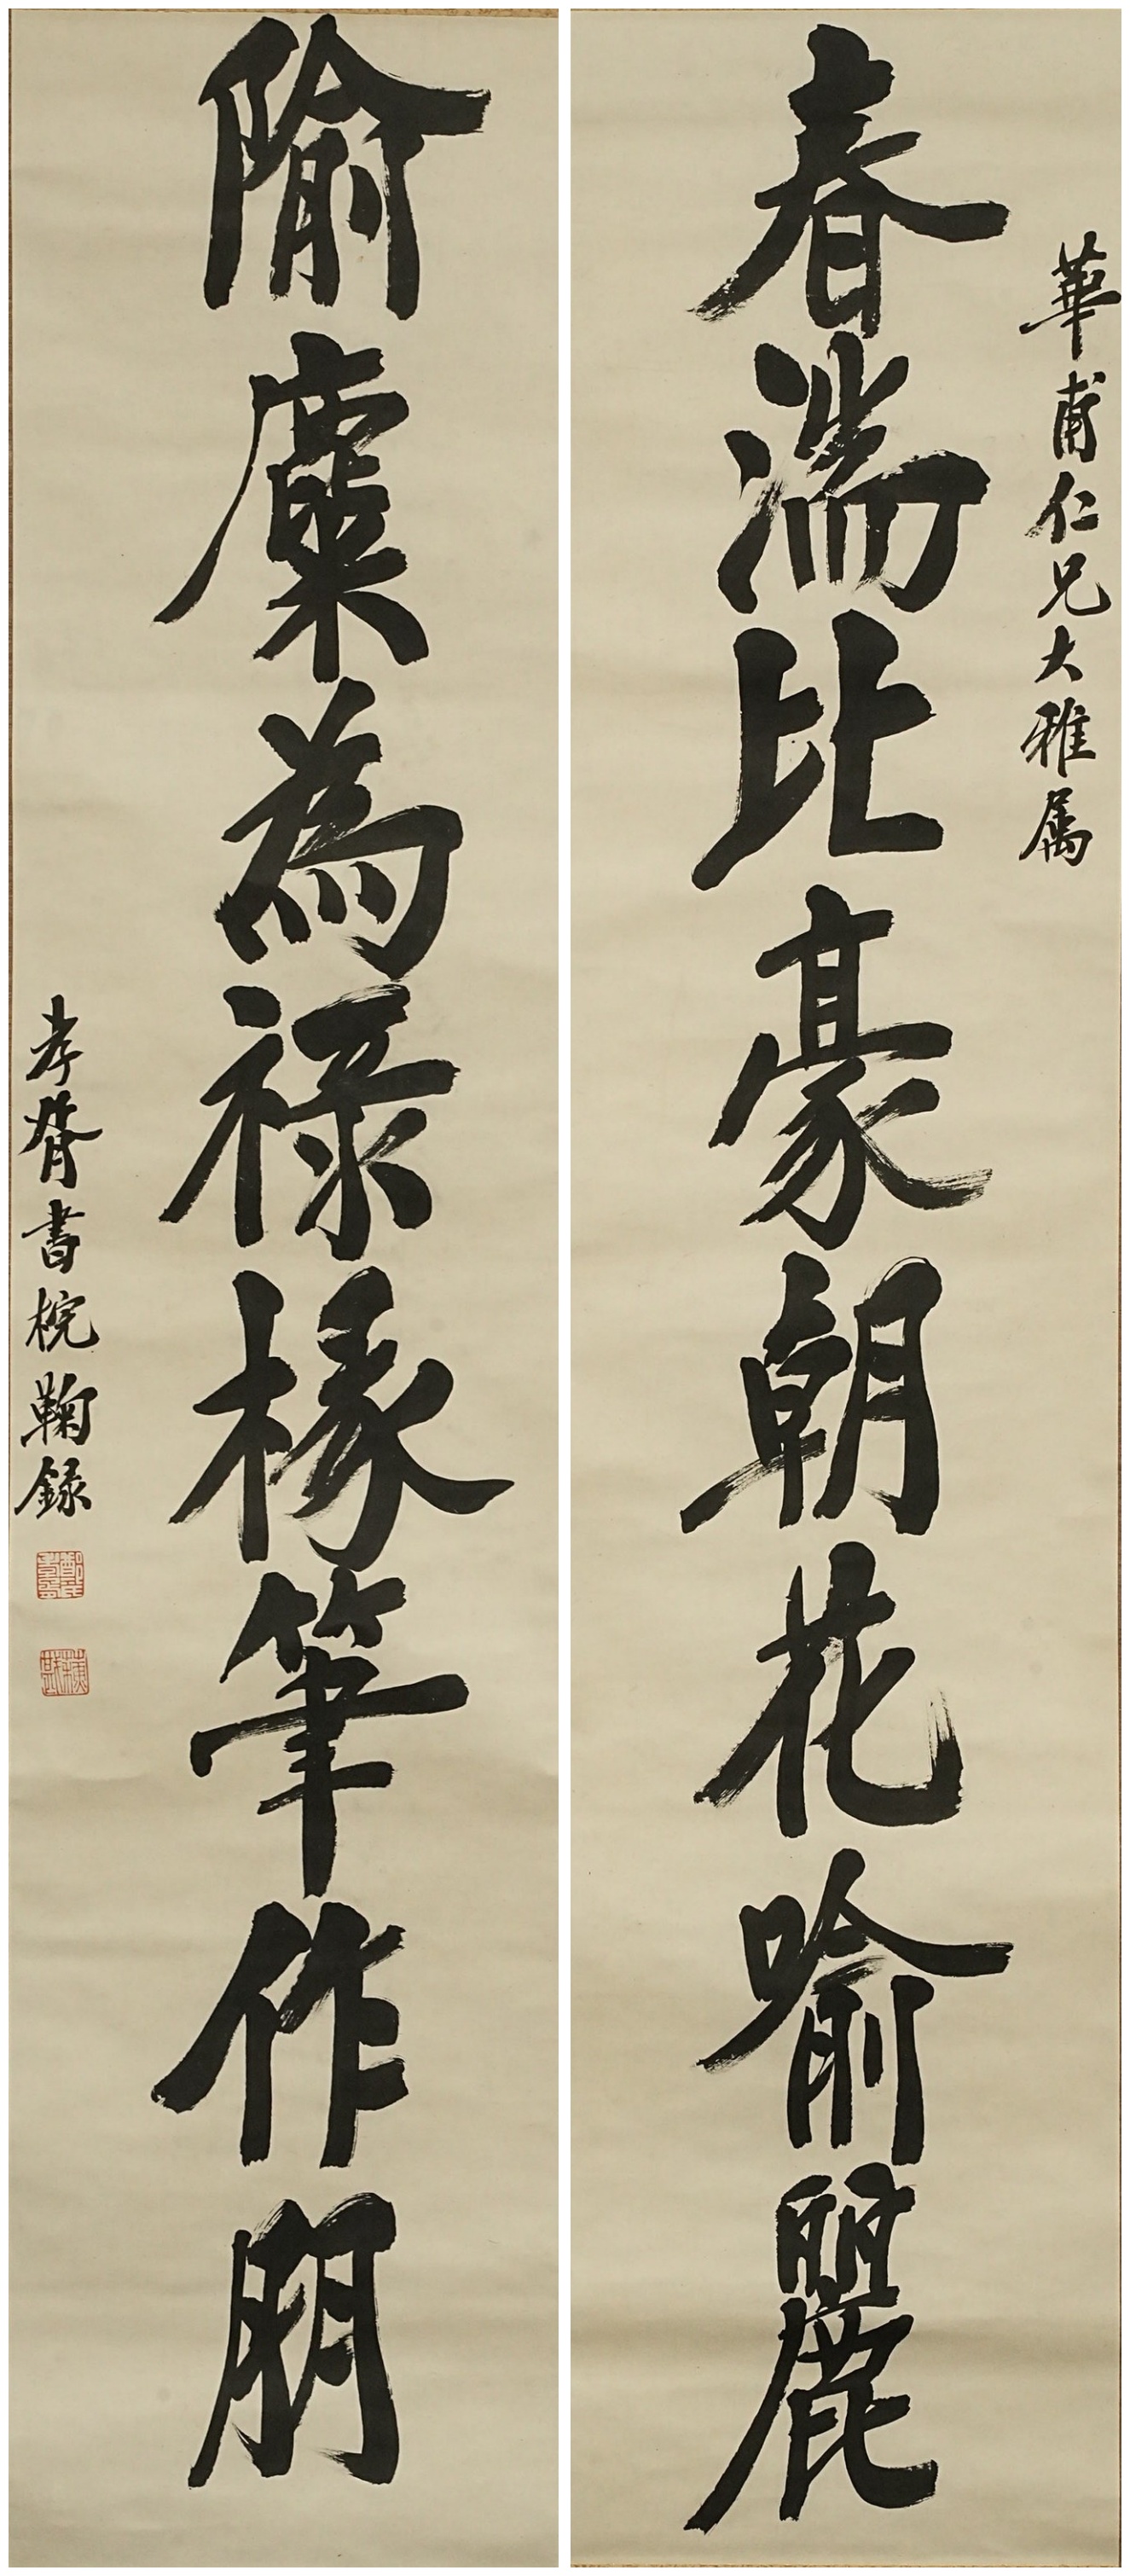 華甫仁兄大雅属
春湍比豪朝花喻麗
隃麋為祿椽筆作朋
孝胥書椀鞠録